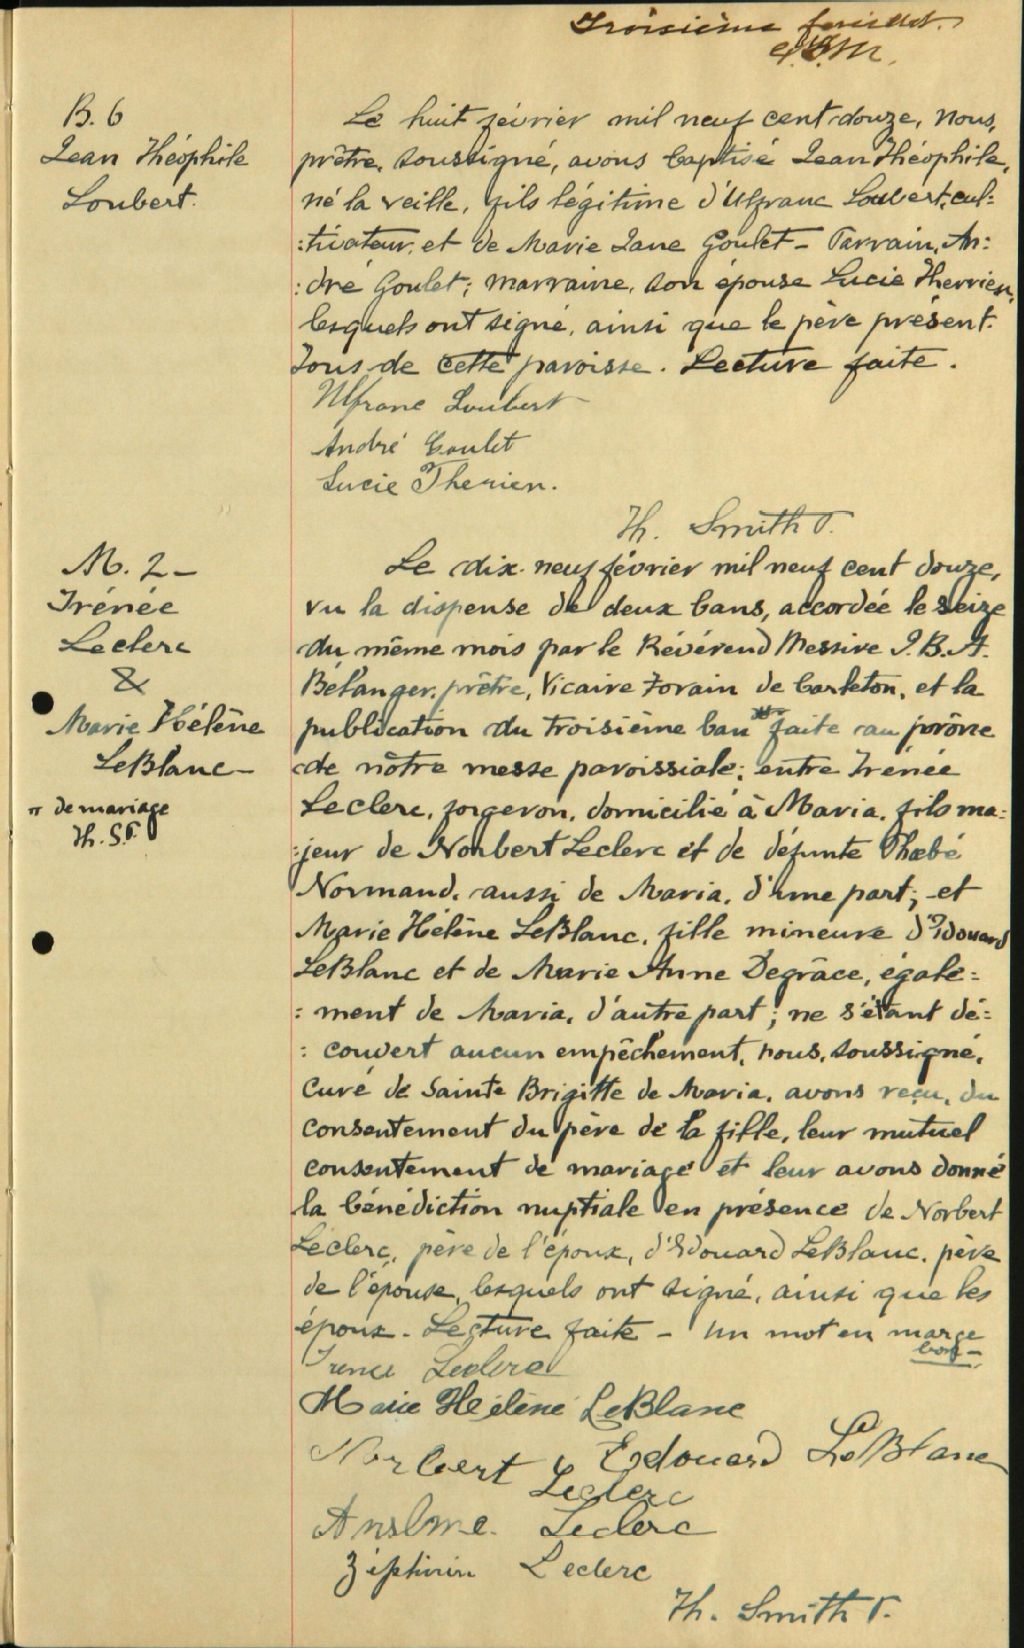 Troisième feuillet.
B. 6
Jean Théophile
Loubert.
Le huit février mil neuf cent douze, nous,
prêtre soussigné, avons baptisé Jean Théophile,
né la veille, fils légitime d'Ulfranc Loubert, cul=
:tivateur, et de Marie Jane Goulet - Parrain, An:
:dré Goulet; marraine, son épouse Lucie Therrien,
lesquels ont signé, ainsi que le père présent.
Tous de cette paroisse. Lecture faite.
Ulfranc Loubert
André Goulet
Lucie Therien.
Th. Smith P.
M. 2 -
Irénée
Leclerc
&
Marie Hélène
LeBlanc -
π de mariage
Th. S. P.
Le dix-neuf février mil neuf cent douze,
vu la dispense de deux bans, accordée le seize
du même mois par le Révérend Messire J. B. A.
Bélanger, prêtre, Vicaire Forain de Carleton, et la
publication du troisième ban π faite au prône
de nôtre messe paroissiale; entre Irénée
Leclerc, forgeron, domicilié à Maria, fils ma=
:jeur de Norbert Leclerc et de défunte Phœbé
Normand, aussi de Maria, d'une part; et
Marie Hélène LeBlanc, fille mineure d'Edouard
LeBlanc et de Marie Anne Degrâce, égale=
:ment de Maria, d'autre part; ne s'étant dé=
:couvert aucun empêchement, nous, soussigné,
Curé de Sainte Brigitte de Maria, avons reçu, du
consentement du père de la fille, leur mutuel
consentement de mariage et leur avons donné
la bénédiction nuptiale en présence de Norbert
Leclerc, père de l'époux, d'Edouard LeBlanc, père
de l'épouse, lesquels ont signé, ainsi que les
époux - Lecture faite - Un mot en marge
bon -
Irenee Leclerc
Marie Hélène LeBlanc
Norbert Leclerc Edouard LeBlanc
Anslme Leclerc
Ziphirin Leclerc
Th. Smith P.